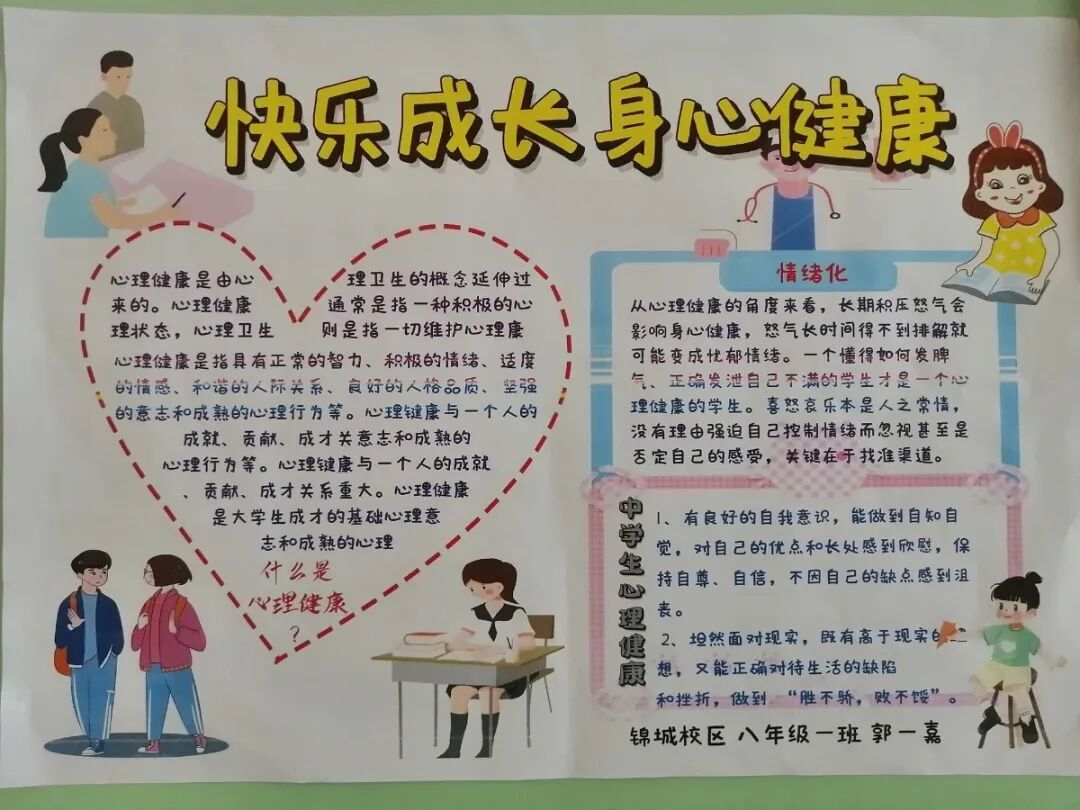 快乐成长身心健康
心理健康是由心
来的。心理健康
理状态，心理卫生
理卫生的概念延伸过
通常是指一种积极的心
则是指一切维护心理康
心理健康是指具有正常的智力、积极的情绪、适度
的情感、和谐的人际关系、良好的人格品质、坚强
的意志和成熟的心理行为等。心理键康与一个人的
成就、贡献、成才关意志和成熟的
心理行为等。心理键康与一个人的成就
、贡献、成才关系重大。心理键康
是大学生成才的基础心理意
志和成熟的心理
什么是
心理健康
？
情绪化
从心理健康的角度来看，长期积压怒气会
影响身心健康，怒气长时间得不到排解就
可能变成忧郁情绪。一个懂得如何发脾
气、正确发泄自己不满的学生才是一个心
理健康的学生。喜怒哀乐本是人之常情，
没有理由强迫自己控制情绪而忽视甚至是
否定自己的感受，关键在于找准渠道。
中学生心理健康
1、有良好的自我意识，能做到自知自
觉，对自己的优点和长处感到欣慰，保
持自尊、自信，不因自己的缺点感到沮
丧。
2、坦然面对现实，既有高于现实的
想，又能正确对待生活的缺陷
和挫折，做到“胜不骄，败不馁”。
锦城校区 八年级一班 郭一嘉